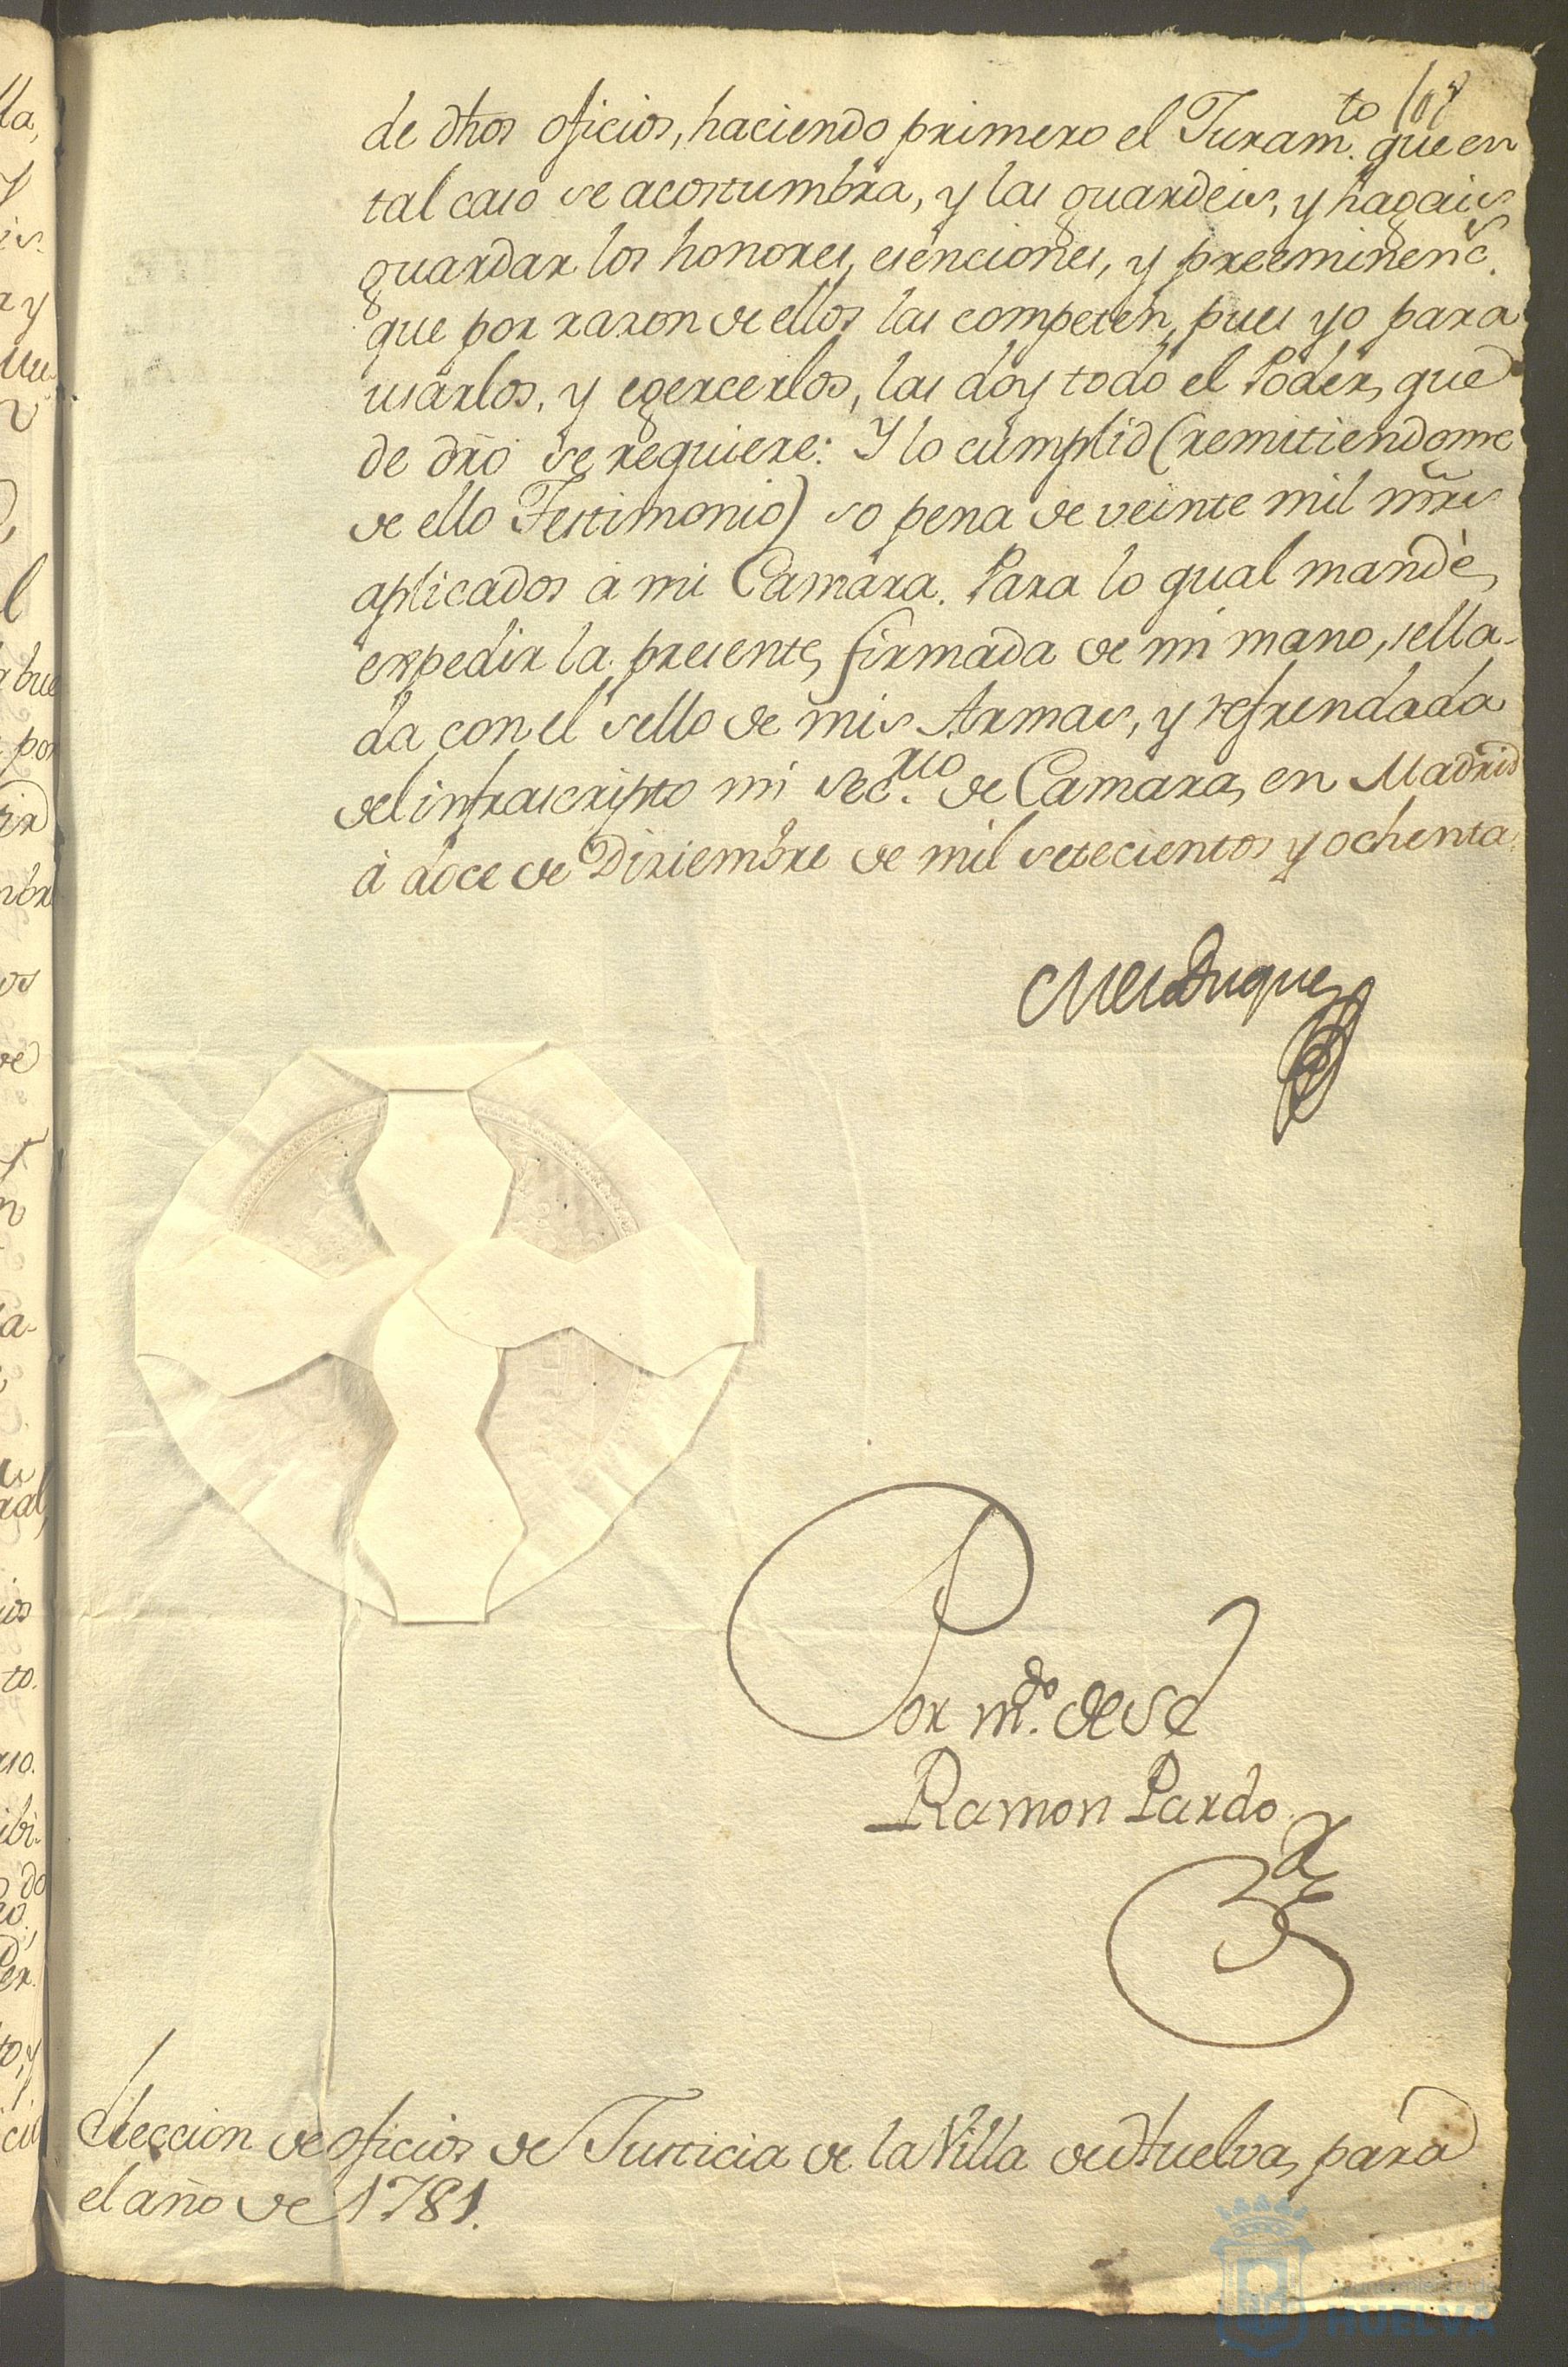 108
de dhos oficios, haciendo primero el Juram.to que en
tal caso se acostumbra, y las guardeis, y hagais
guardar los honores, esenciones, y preeminenc.s
que por razon de ellos las competen, pues yo para
usarlos, y egercerlos, las doy todo el Poder, que
de dro se requiere: Y lo cumplid (remitiendome
de ello Testimonio) so pena de veinte mil mrs
aplicados à mi Camara. Para lo qual mandè
expedir la presente, firmada de mi mano, sella-
da con el sello de mis Armas, y refrendada
del infrascripto mi Sec.rio de Camara, en Madrid
à doce de Diziembre de mil setecientos y ochenta.
Por m.do de S E
Ramon Pardo
Eleccion de oficios de Justicia de la Villa de Huelva, para
el año de 1781.
Ayuntamiento de
HUELVA